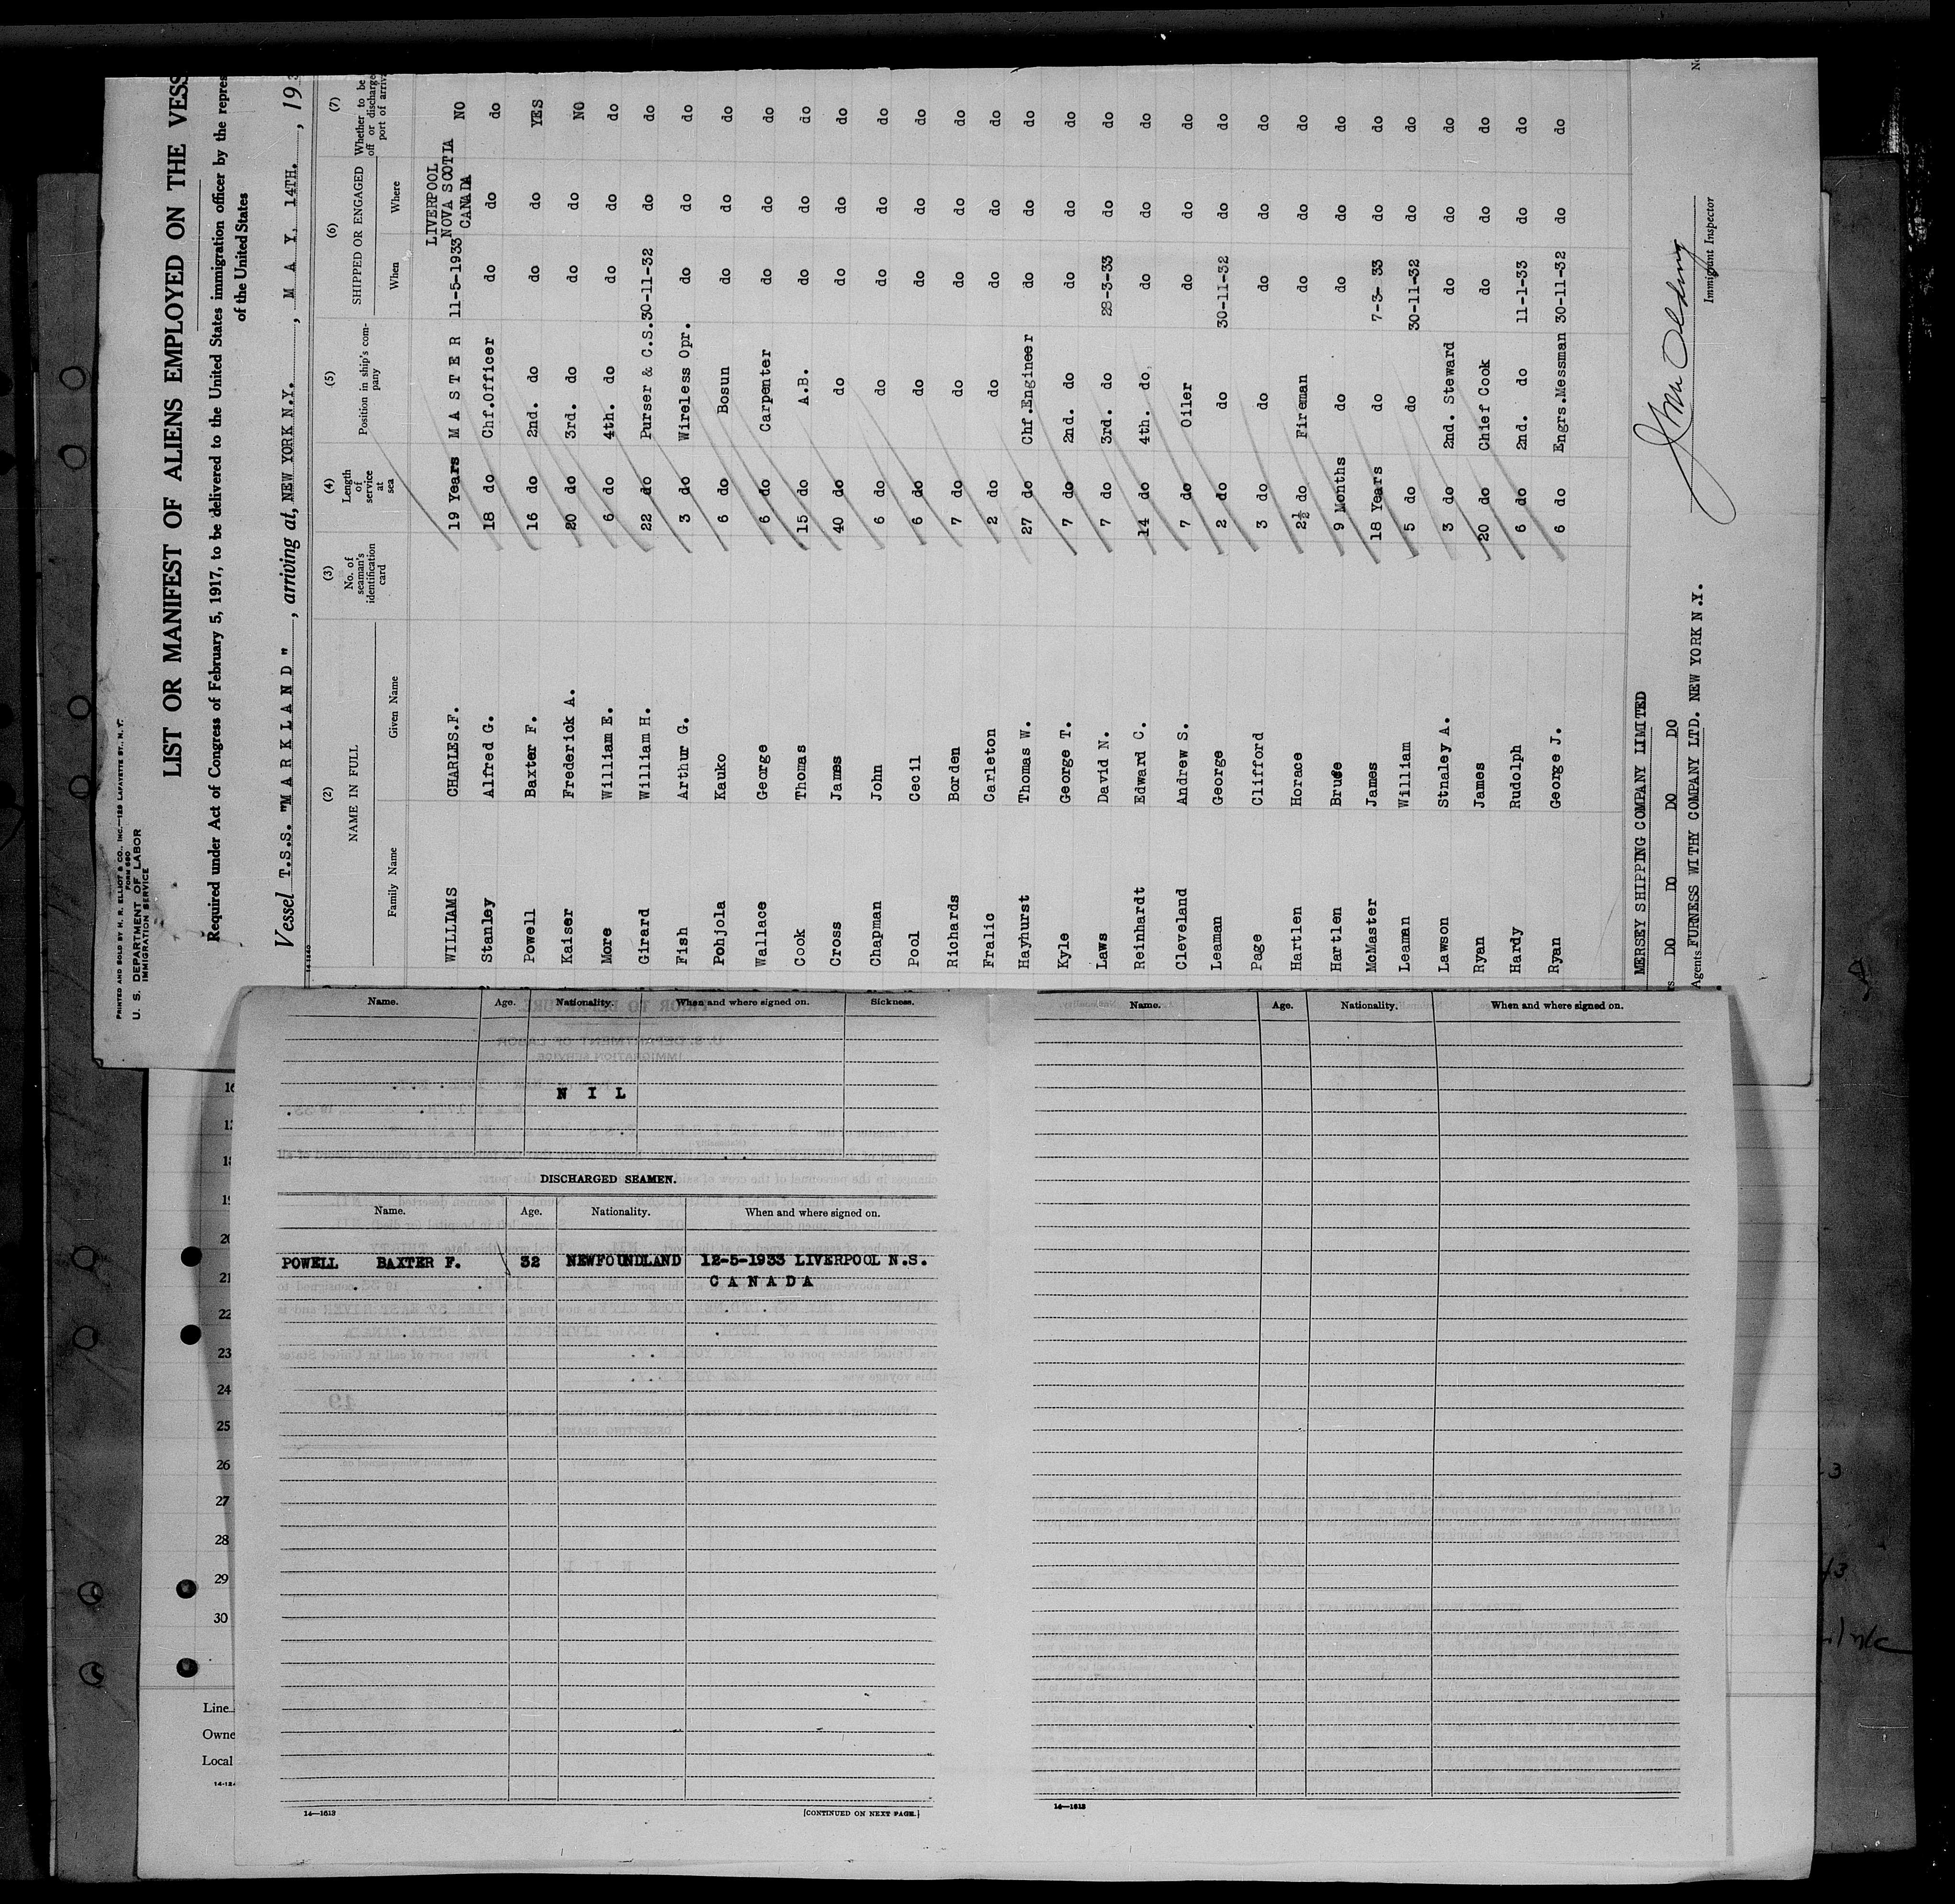 PRINTED AND SOLD BY H. R. ELLIOT & CO., INC.—129 LAFAYETTE ST., N.Y.
FORM 680
U. S. DEPARTMENT OF LABOR
IMMIGRATION SERVICE
LIST OR MANIFEST OF ALIENS EMPLOYED ON THE VESS
Required under Act of Congress of February 5, 1917, to be delivered to the United States immigration officer by the repres
of the United States
Vessel T.S.S. "M A R K L A N D", arriving at, NEW YORK N.Y., M A Y, 14TH., 193
(2) NAME IN FULL (3) No. of seaman's identification card (4) Length of service at sea (5) Position in ship's company (6) SHIPPED OR ENGAGED (7) Whether to be off or discharge port of arriva
Family Name Given Name When Where
WILLIAMS CHARLES.F. 19 Years M A S T E R 11-5-1933 LIVERPOOL NOVA SCOTIA CANADA NO
Stanley Alfred G. 18 do Chf.Officer do do do
Powell Baxter F. 16 do 2nd. do do do YES
Kaiser Frederick A. 20 do 3rd. do do do NO
More William E. 6 do 4th. do do do do
Girard William H. 22 do Purser & C.S. 30-11-32 do do
Fish Arthur G. 3 do Wireless Opr. do do do
Pohjola Kauko 6 do Bosun do do do
Wallace George 6 do Carpenter do do do
Cook Thomas 15 do A.B. do do do
Cross James 40 do do do do do
Chapman John 6 do do do do do
Pool Cecil 6 do do do do do
Richards Borden 7 do do do do do
Fralic Carleton 2 do do do do do
Hayhurst Thomas W. 27 do Chf.Engineer do do do
Kyle George T. 7 do 2nd. do do do do
Laws David N. 7 do 3rd. do 23-3-33 do do
Reinhardt Edward C. 14 do 4th. do. do do do
Cleveland Andrew S. 7 do Oiler do do do
Leaman George 2 do do 30-11-32 do do
Page Clifford 3 do do do do do
Hartlen Horace 2½ do Fireman do do do
Hartlen Bruce 9 Months do do do do
McMaster James 18 Years do 7-3-33 do do
Leaman William 5 do do 30-11-32 do do
Lawson Stnaley A. 3 do 2nd. Steward do do do
Ryan James 20 do Chief Cook do do do
Hardy Rudolph 6 do 2nd. do 11-1-33 do do
Ryan George J. 6 do Engrs.Messman 30-11-32 do do
MERSEY SHIPPING COMPANY LIMITED
rs DO DO DO DO
Agents FURNESS WITHY COMPANY LTD. NEW YORK N.Y.
Immigrant Inspector
No
Name. Age. Nationality. When and where signed on. Sickness.
N I L
DISCHARGED SEAMEN.
Name. Age. Nationality. When and where signed on.
POWELL BAXTER F. 32 NEWFOUNDLAND 12-5-1933 LIVERPOOL N.S.
C A N A D A
14—1613 [CONTINUED ON NEXT PAGE.]
Name. Age. Nationality. When and where signed on.
14—1613
18
20
21
22
23
24
25
26
27
28
29
30
Line
Owne
Local